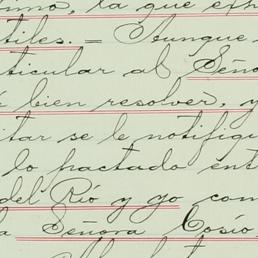 timo, la que
tiles. = Aunque
ticular al Seño
bien resolver, y
itar se le notifiqu
lo pactado ent
del Río y yo com
a Señora Cosío,